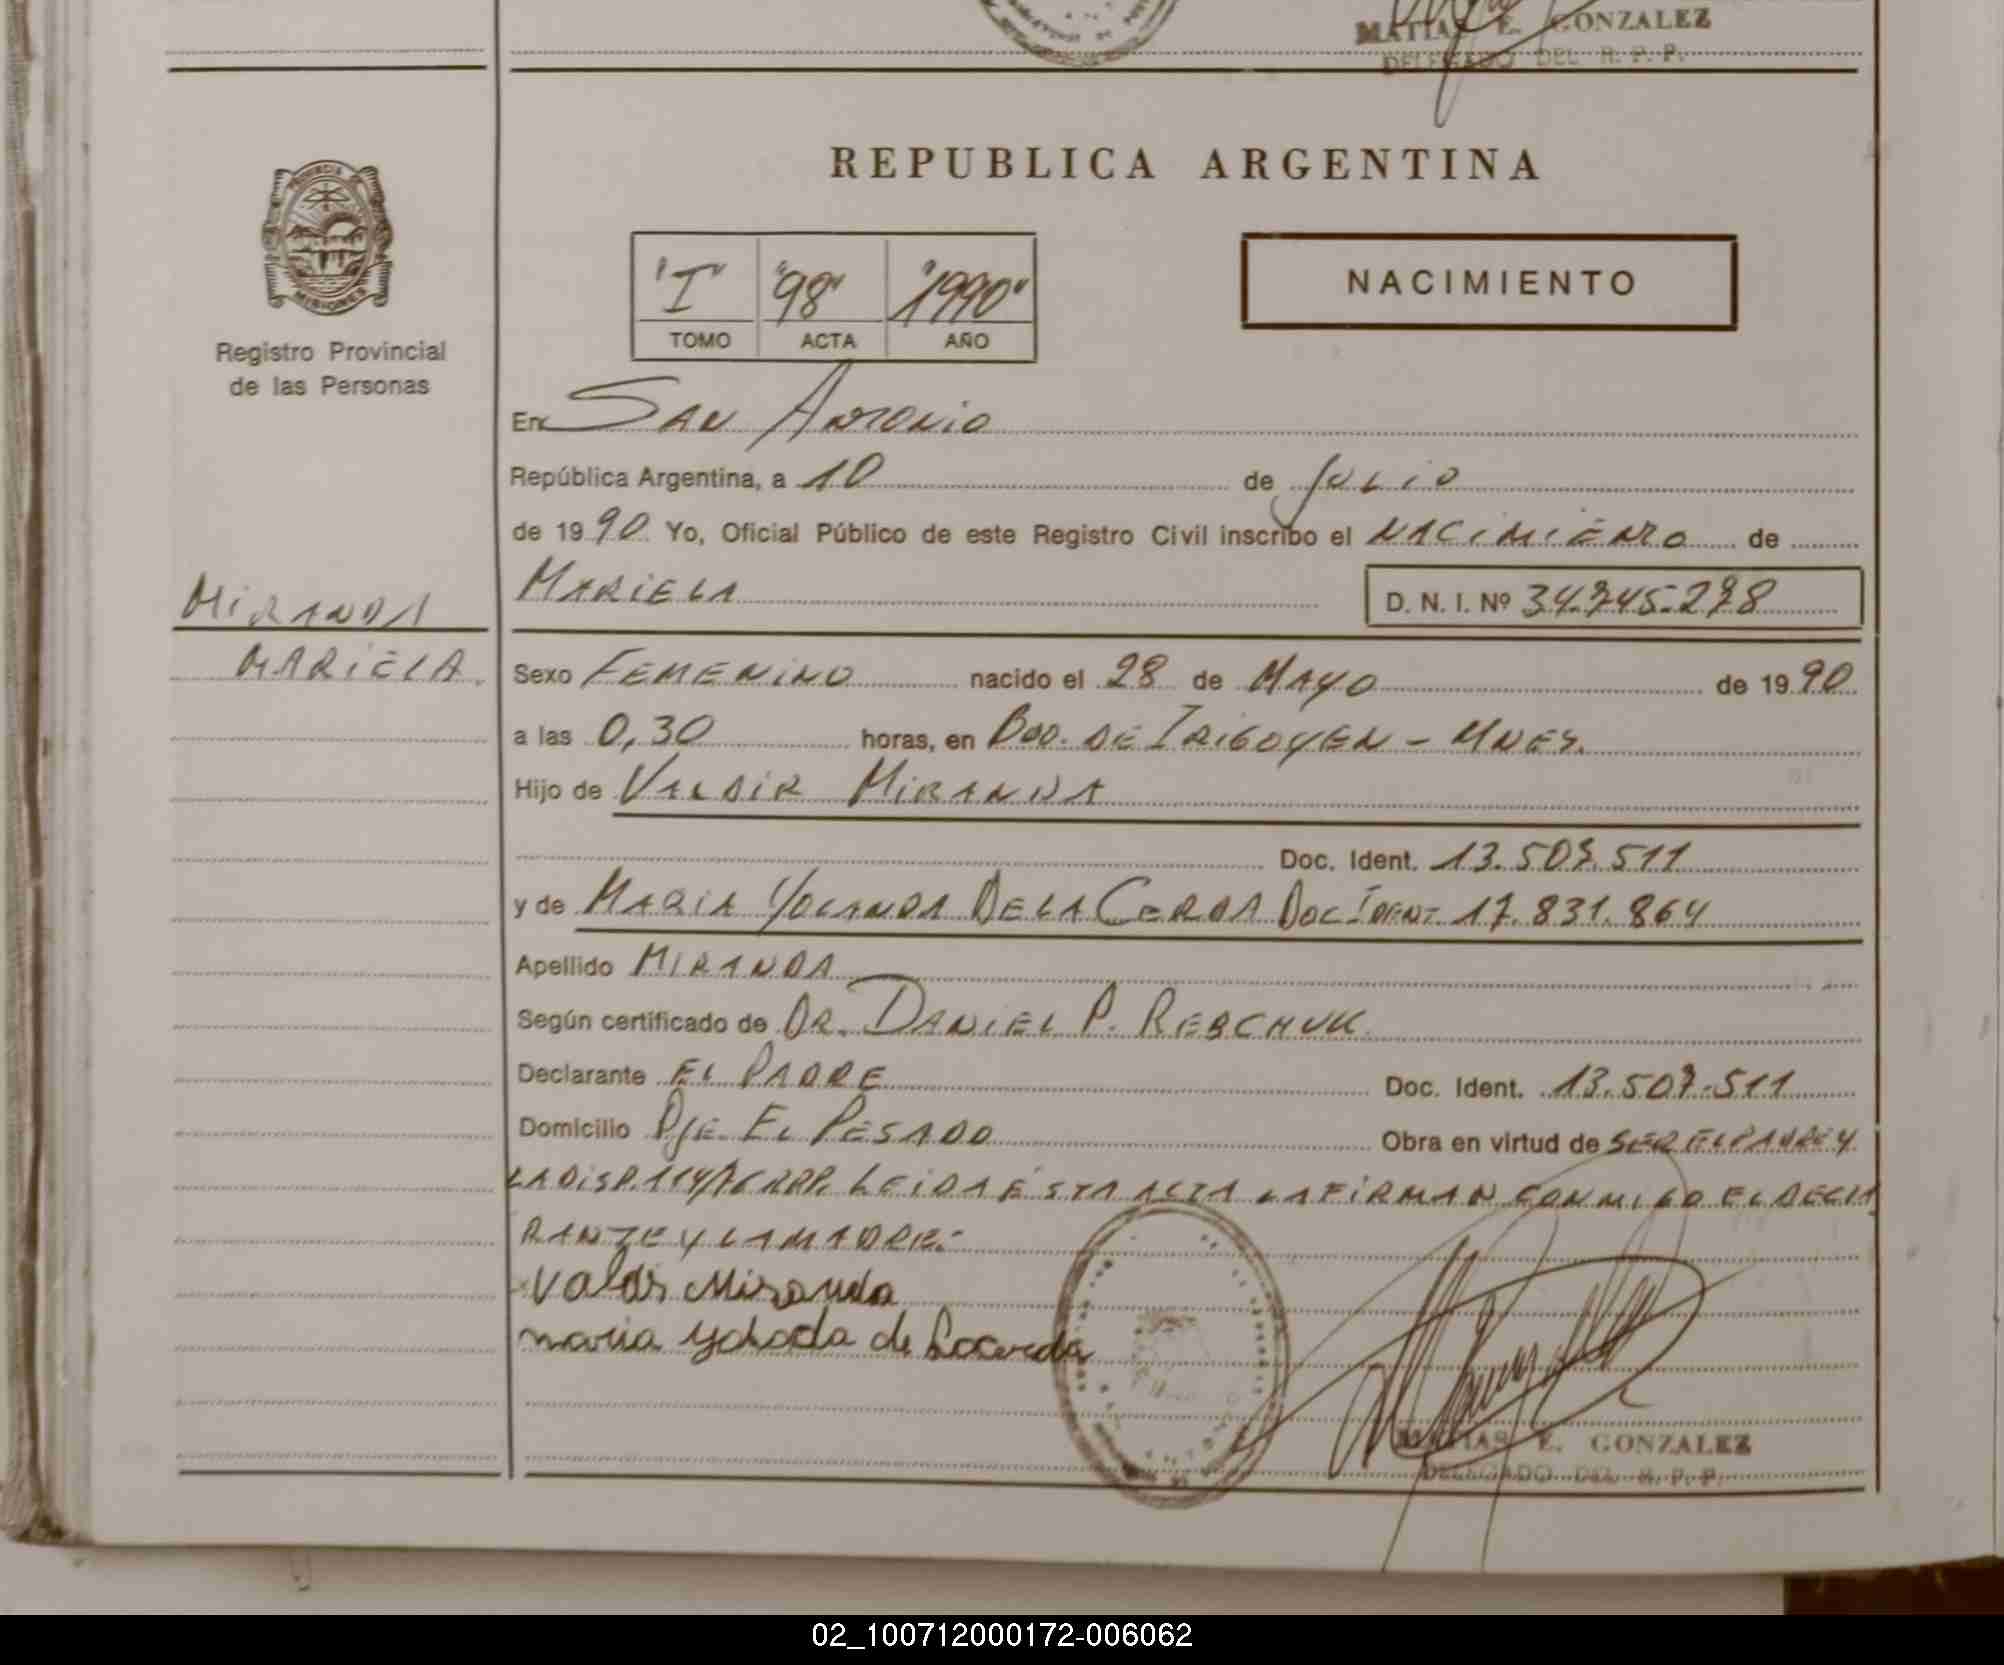 MATIAS E. GONZALEZ
DELEGADO DEL R. P. P.
PROVINCIA DE
MISIONES
Registro Provincial
de las Personas
REPUBLICA ARGENTINA
"I" "98" "1990"
TOMO ACTA AÑO
NACIMIENTO
En SAN ANTONIO
República Argentina, a 10 de JULIO
de 1990. Yo, Oficial Público de este Registro Civil inscribo el NACIMIENTO de
MIRANDA
MARIELA.
MARIELA D. N. I. Nº 34.745.278
Sexo FEMENINO nacido el 28 de MAYO de 1990
a las 0,30 horas, en BDO. DE IRIGOYEN - MNES.
Hijo de VALDIR MIRANDA
Doc. Ident. 13.507.511
y de MARIA YOLANDA DE LA CERDA DOC IDENT. 17.831.864
Apellido MIRANDA
Según certificado de DR. DANIEL P. REBCHUK
Declarante EL PADRE Doc. Ident. 13.507.511
Domicilio PJE. EL PESADO Obra en virtud de SER EL PADRE Y
LA DISP. 114/76 RPP. LEIDA ESTA ACTA LA FIRMAN CONMIGO EL DECLA
RANTE Y LA MADRE.-
Valdir Miranda
maria yolada de Lacerda
MATIAS E. GONZALEZ
DELEGADO DEL R. P. P.
02_100712000172-006062